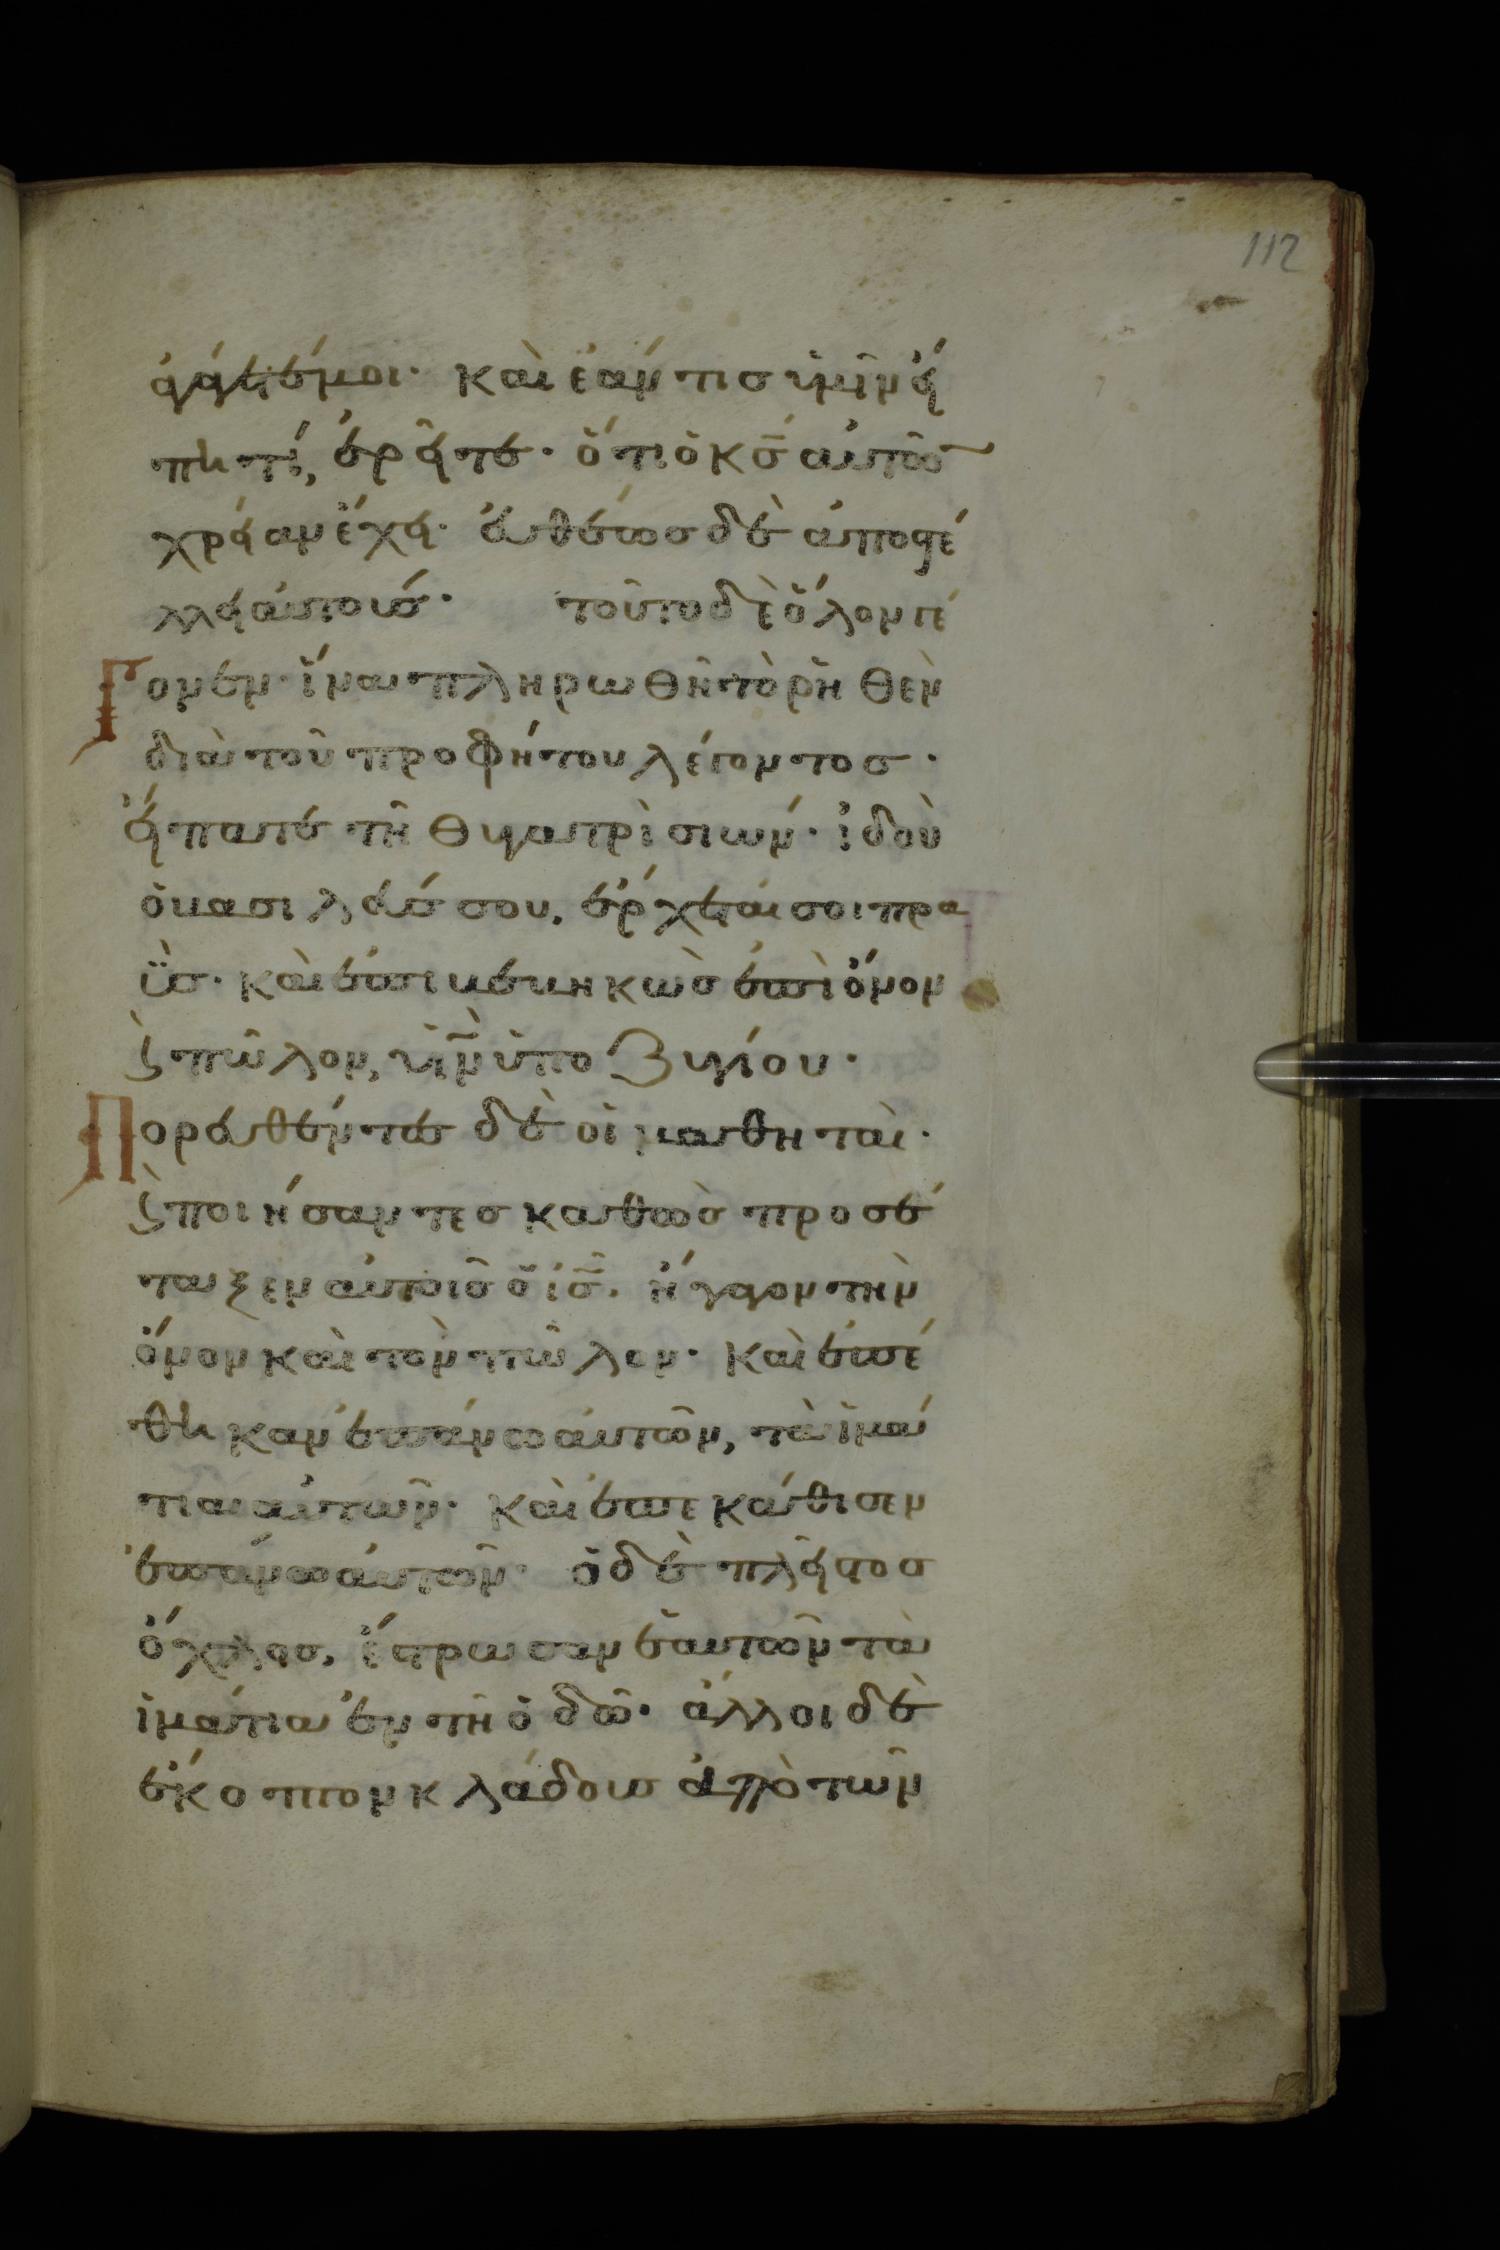 112
ἀγάγετέ μοι· καὶ ἐάν τισ ὑμῖν εί
πη τί, ἐρεῖτε· ὅτι ὁ κσ̄ αὐτῶν
χρείαν ἔχει· εὐθέωσ δὲ ἀποστέ
λλει αὐτούσ· τοῦτο δὲ ὅλον γέ
γονεν· ἵνα πληρωθῆ τὸ ῥηθὲν
διὰ τοῦ προφήτου λέγοντοσ·
εἴπατε τῆ θυγατρὶ σιών· ἰδοὺ
ὁ βασιλεύσ σου, ἔρχεταί σοι πρα
ῢσ· καὶ ἐπιβεβηκὼσ ἐπὶ ὄνον
ϗ̀ πῶλον, υἱ̄ν ὑποζυγίου·
Πορευθέντεσ δὲ οἱ μαθηταὶ·
ϗ̀ ποιήσαντεσ καθὼσ προσέ
ταξεν αὐτοῖσ ὁ ἰ̄σ. ἤγαγον τὴν
ὄνον καὶ τὸν πῶλον· καὶ ἐπέ
θηκαν ἐπάνω αὐτῶν, τὰ ἱμά
τια αὐτῶν· καὶ ἐπεκάθισεν
ἐπάνω αὐτῶν· ὁ δὲ πλεῖστοσ
ὄχλοσ, ἔστρωσαν ἑαυτῶν τὰ
ἱμάτια ἐν τῆ ὁδῶ· ἄλλοι δὲ
ἔκοπτον κλάδουσ ἀπὸ τῶν